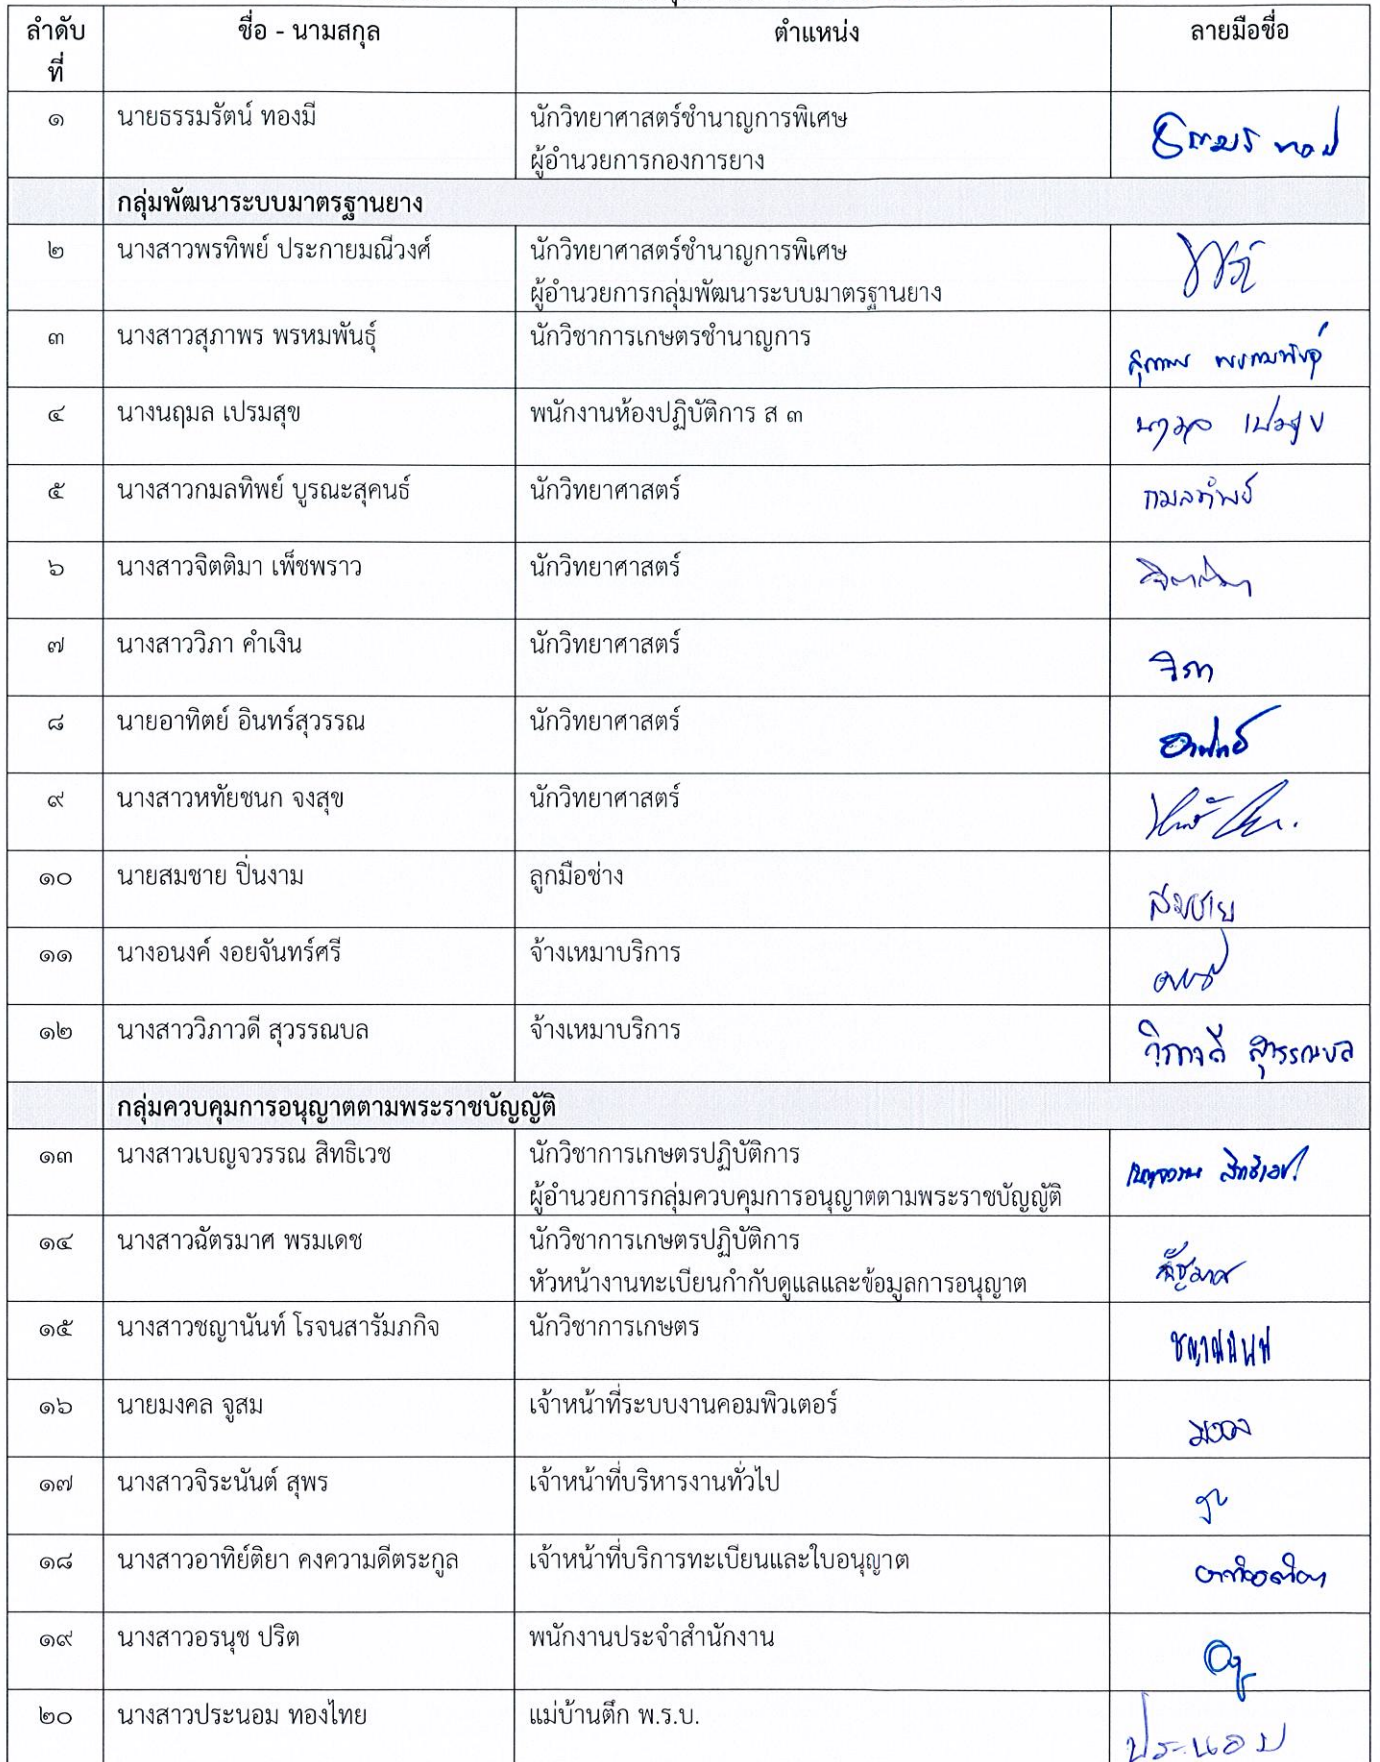 ลำดับ ชื่อ - นามสกุล ตำแหน่ง ลายมือชื่อ
ที่
๑ นายธรรมรัตน์ ทองมี นักวิทยาศาสตร์ชำนาญการพิเศษ
ผู้อำนวยการกองการยาง
กลุ่มพัฒนาระบบมาตรฐานยาง
๒ นางสาวพรทิพย์ ประกายมณีวงศ์ นักวิทยาศาสตร์ชำนาญการพิเศษ
ผู้อำนวยการกลุ่มพัฒนาระบบมาตรฐานยาง
๓ นางสาวสุภาพร พรหมพันธุ์ นักวิชาการเกษตรชำนาญการ
สุภาพร พรหมพันธุ์
๔ นางนฤมล เปรมสุข พนักงานห้องปฏิบัติการ ส ๓
นฤมล เปรมสุข
๕ นางสาวกมลทิพย์ บูรณะสุคนธ์ นักวิทยาศาสตร์ กมลทิพย์
๖ นางสาวจิตติมา เพ็ชพราว นักวิทยาศาสตร์ จิตติมา
๗ นางสาววิภา คำเงิน นักวิทยาศาสตร์ วิภา
๘ นายอาทิตย์ อินทร์สุวรรณ นักวิทยาศาสตร์ อาทิตย์
๙ นางสาวหทัยชนก จงสุข นักวิทยาศาสตร์
๑๐ นายสมชาย ปิ่นงาม ลูกมือช่าง สมชาย
๑๑ นางอนงค์ งอยจันทร์ศรี จ้างเหมาบริการ อนงค์
๑๒ นางสาววิภาวดี สุวรรณบล จ้างเหมาบริการ วิภาวดี สุวรรณบล
กลุ่มควบคุมการอนุญาตตามพระราชบัญญัติ
๑๓ นางสาวเบญจวรรณ สิทธิเวช นักวิชาการเกษตรปฏิบัติการ เบญจวรรณ สิทธิเวช
ผู้อำนวยการกลุ่มควบคุมการอนุญาตตามพระราชบัญญัติ
๑๔ นางสาวฉัตรมาศ พรมเดช นักวิชาการเกษตรปฏิบัติการ
หัวหน้างานทะเบียนกำกับดูแลและข้อมูลการอนุญาต
๑๕ นางสาวชญานันท์ โรจนสารัมภกิจ นักวิชาการเกษตร ชญานันท์
๑๖ นายมงคล จูสม เจ้าหน้าที่ระบบงานคอมพิวเตอร์ มงคล
๑๗ นางสาวจิระนันต์ สุพร เจ้าหน้าที่บริหารงานทั่วไป
๑๘ นางสาวอาทิย์ติยา คงความดีตระกูล เจ้าหน้าที่บริการทะเบียนและใบอนุญาต
๑๙ นางสาวอรนุช ปริต พนักงานประจำสำนักงาน
๒๐ นางสาวประนอม ทองไทย แม่บ้านตึก พ.ร.บ. ประนอม